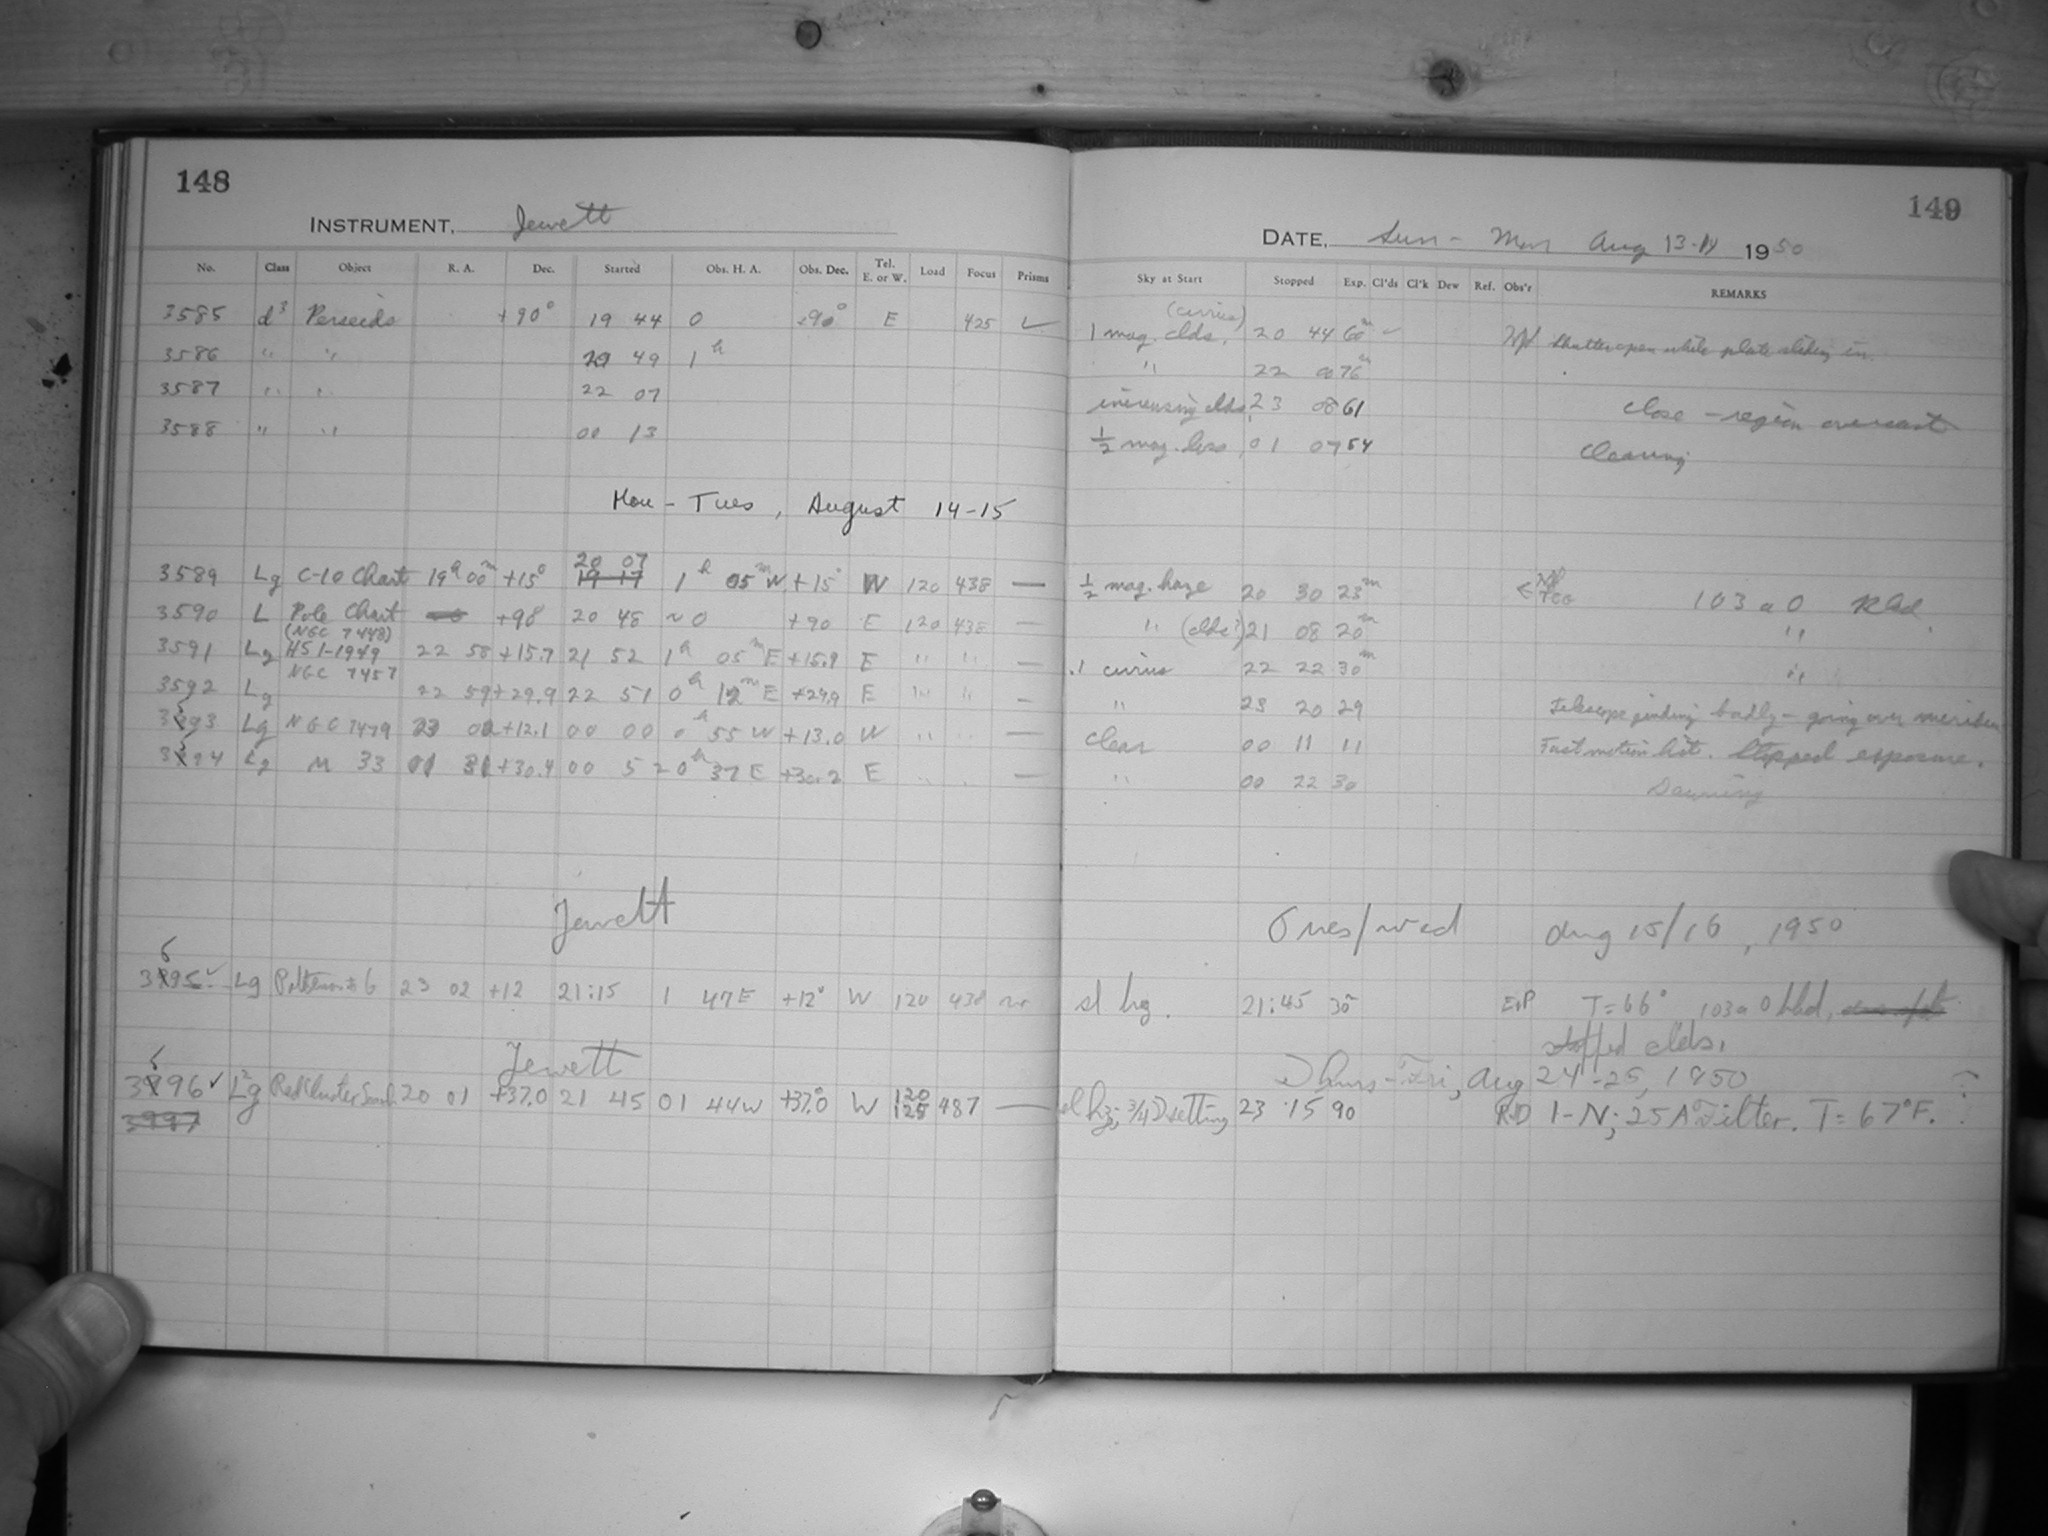 148
149
INSTRUMENT, Jewett
DATE, Sun - Mon Aug 13-14 1950
No. Class Object R. A. Dec. Started Obs. H. A. Obs. Dec. Tel. E. or W. Load Focus Prisms Sky at Start Stopped Exp. Cl'ds Cl'k Dew Ref. Obs'r REMARKS
3585 d³ Perseids +90° 19 44 0 +90° E 425 ✓ 1 mag. clds. (cirrus) 20 44 60m ✓ shutter open while plate sliding in.
3586 " " 49 1h " 22 76m
3587 " " 22 07 increasing clds, 23 08 61 Close - region overcast
3588 " " 00 13 1/2 mag. loss, 01 07 54 Clearing
Mon - Tues, August 14-15
3589 Lg C-10 Chart 19h 00m +15° 19 17 20 07 1h 05m W +15° W 120 438 — 1/2 mag. haze 20 30 23m 103 a O
3590 L Pole Chart +90 20 48 ~0 +90 E 120 438 — " (clds?) 21 08 20m "
3591 Lg (NGC 7448) HS 1-1949 22 58 +15.7 21 52 1h 05m E +15.9 E " " — .1 cirrus 22 22 30m "
3592 Lg NGC 7457 22 59 +29.9 22 51 0h 12m E +29.9 E " " — " 23 20 29 Telescope badly - going over meridian
3593 Lg NGC 7479 23 02 +12.1 00 00 0h 55 W +13.0 W " " — Clear 00 11 11 Fast motion hist. Stopped exposure.
3594 Lg M 33 01 31 +30.4 00 52 0h 37 E +30.2 E " " — " 00 22 30 Dawning
Jewett Tues/Wed Aug 15/16, 1950
3695 ✓ Lg 23 02 +12 21:15 1 47 E +12° W 120 438 sl hz. 21:45 30 T=66° 103a O
stopped clds.
Jewett Thurs - Fri, Aug 24-25, 1950
3696 ✓ L²g Red Cluster Search 20 01 +37.0 21 45 01 44 W +37.0 W 120 125 487 — sl hz; 3/4 D setting 23 15 90 RD 1-N; 25 A Filter. T = 67°F.
3997